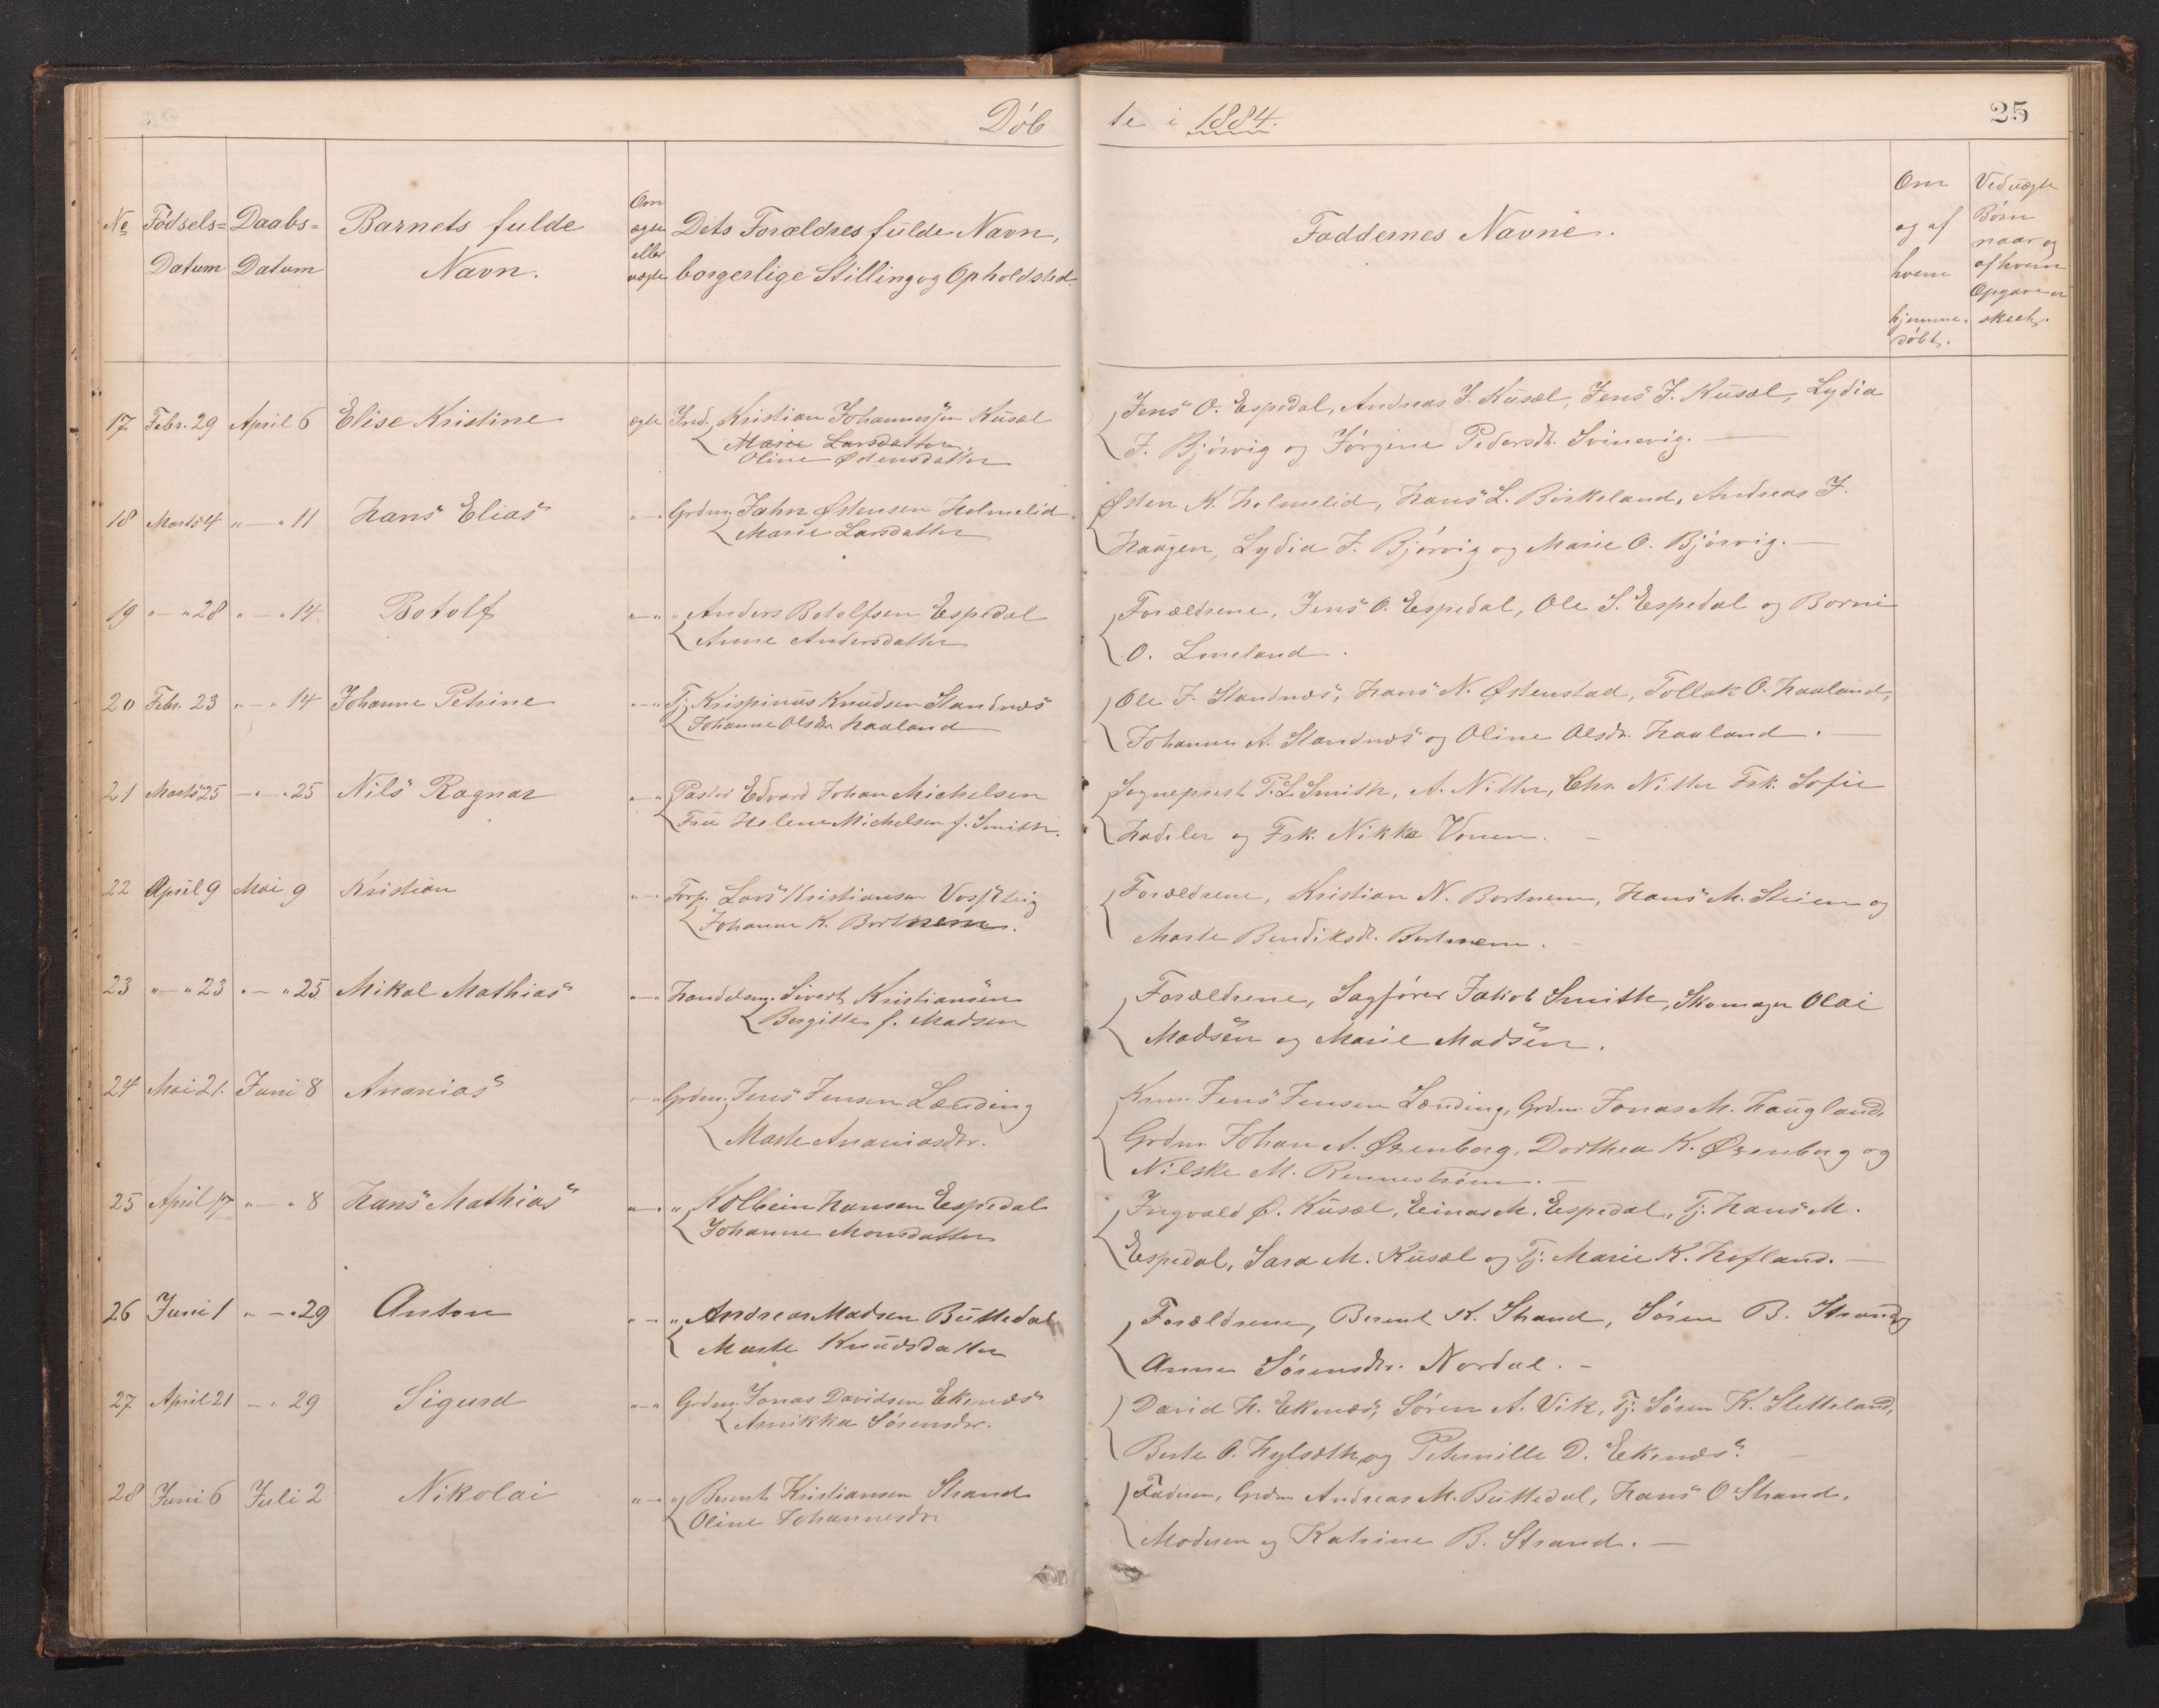 Døb
te i 1884.
25
No
Fødsels=
Datum
Daabs=
Datum
Barnets fulde
Navn.
Om
ægte
eller
uægte
Dets Forældres fulde Navn,
borgerlige Stilling og Opholdsted.
Faddernes Navne.
Om
og af
hvem
hjemme-
døbt.
Ved uægte
Børn
naar og
af hvem
Opgave er
skeet.
17 Febr. 29 April 6 Elise Kristine ægte Ind. Kristian Johannessen Kusæl
Marie Larsdatter
Oline Østensdatter
Jens O. Espedal, Andreas J. Kusæl, Jens J. Kusæl, Lydia
J. Bjørvig og Jørgine Pedersdr. Svinevig. —
18 Marts 4 " — " 11 Hans Elias " — Grdm. Jahn Østensen Holmelid
Marie Larsdatter
Østen K. Holmelid, Hans L. Birkeland, Andreas J.
Haugen, Lydia J. Bjørvig og Marie O. Bjørvig. —
19 " — " 28 " — " 14 Botolf " — " " Anders Botolfsen Espedal
Anne Andersdatter
Forældrene, Jens O. Espedal, Ole S. Espedal og Borni
O. Lineland.
20 Febr. 23 " — " 14 Johanne Petrine " — " Tj. Krispinus Knudsen Standnæs
Johanne Olsdr. Haaland
Ole J. Standnæs, Hans N. Østenstad, Tollak O. Haaland,
Johannes A. Standnæs og Oline Olsdr. Haaland. —
21 Marts 25 — " — " 25 Nils Ragnar " — " Pastor Edvard Johan Michelsen
Fru Helene Michelsen f. Smith.
Sogneprest P. L. Smith, A. Nitter, Chr. Nitter Frk. Sofie
Hadeler og Frk. Nikka Vonen. —
22 April 9 Mai 9 Kristian " — " Forp. Lars Kristiansen
Johanne K. Bortnem.
Forældrene, Kristian N. Bortnem, Hans M. Steien og
Marte Bendiksdr. Bortnem. —
23 " — " 23 " — " 25 Mikal Mathias " — " Handelsm. Sivert Kristiansen
Bergitte f. Madsen
Forældrene, Sagfører Jakob Smith, Skomager Olai
Madsen og Marie Madsen.
24 Mai 21. Juni 8 Ananias " — " Grdm. Jens Jensen Lænding
Marte Ananiasdr.
Krm. Jens Jensen Lænding, Grdm. Jonas M. Haugland,
Grdm. Johan A. Ørenberg, Dorthea K. Ørenberg og
Nilske M. Rennestrøm. —
25 April 17 " — " 8 Hans Mathias " — " " Kolbein Hansen Espedal
Johanne Monsdatter
Ingvald Ø. Kusæl, Einar M. Espedal, Tj. Hans M.
Espedal, Sara M. Kusæl og Tj. Marie K. Hofland. —
26 Juni 1 " — " 29 Anton " — " " Andreas Madsen Buttedal
Marte Knudsdatter
Forældrene, Berent K. Strand, Søren B. Strand og
Anna Sørensdr. Nordal. —
27 April 21 — " 29 Sigurd " — " Grdm. Jonas Davidsen Ekenæs
Annikka Sørensdr.
David H. Ekenæs, Søren A. Vik, Tj. Søren K. Sletteland,
Berte O. Hylsæth og Peternille D. Ekenæs. —
28 Juni 6 Juli 2 Nikolai " — " " Berent Kristiansen Strand
Oline Johannesdr.
Faderen, Grdm. Andreas M. Buttedal, Hans O Strand,
Moderen og Katrine B. Strand. —